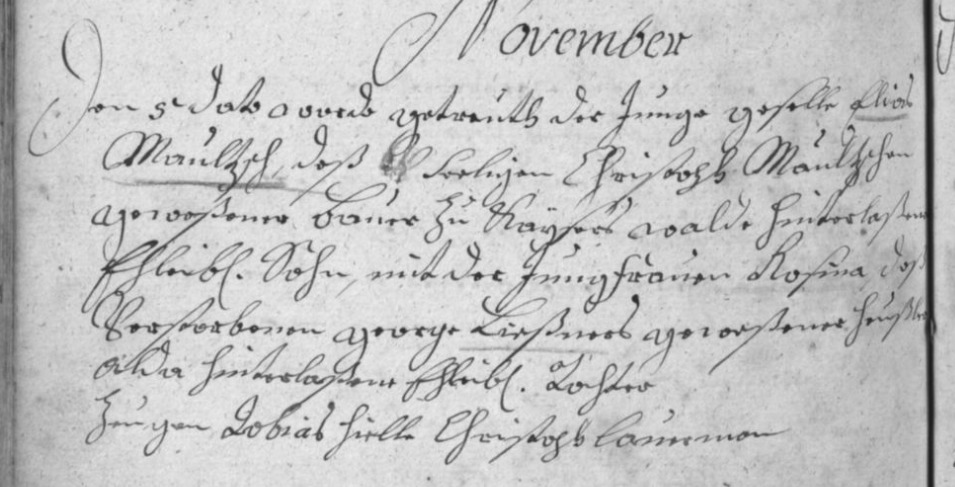 November
Den 5 Dato word getreuth der Junge geselle Elias
Maultzsch, deß Seeligen Christoph Maultzschen
geweßener bauer Zu Kaysers walde hinterlaßener
Ehleibl. Sohn, mit der Jungfrauen Rosina, deß
Verstorbenen george Ließners geweßener heußler
alda hinterlaßene Ehleibl. Tochter
Zeugen Tobias hielle Christoph